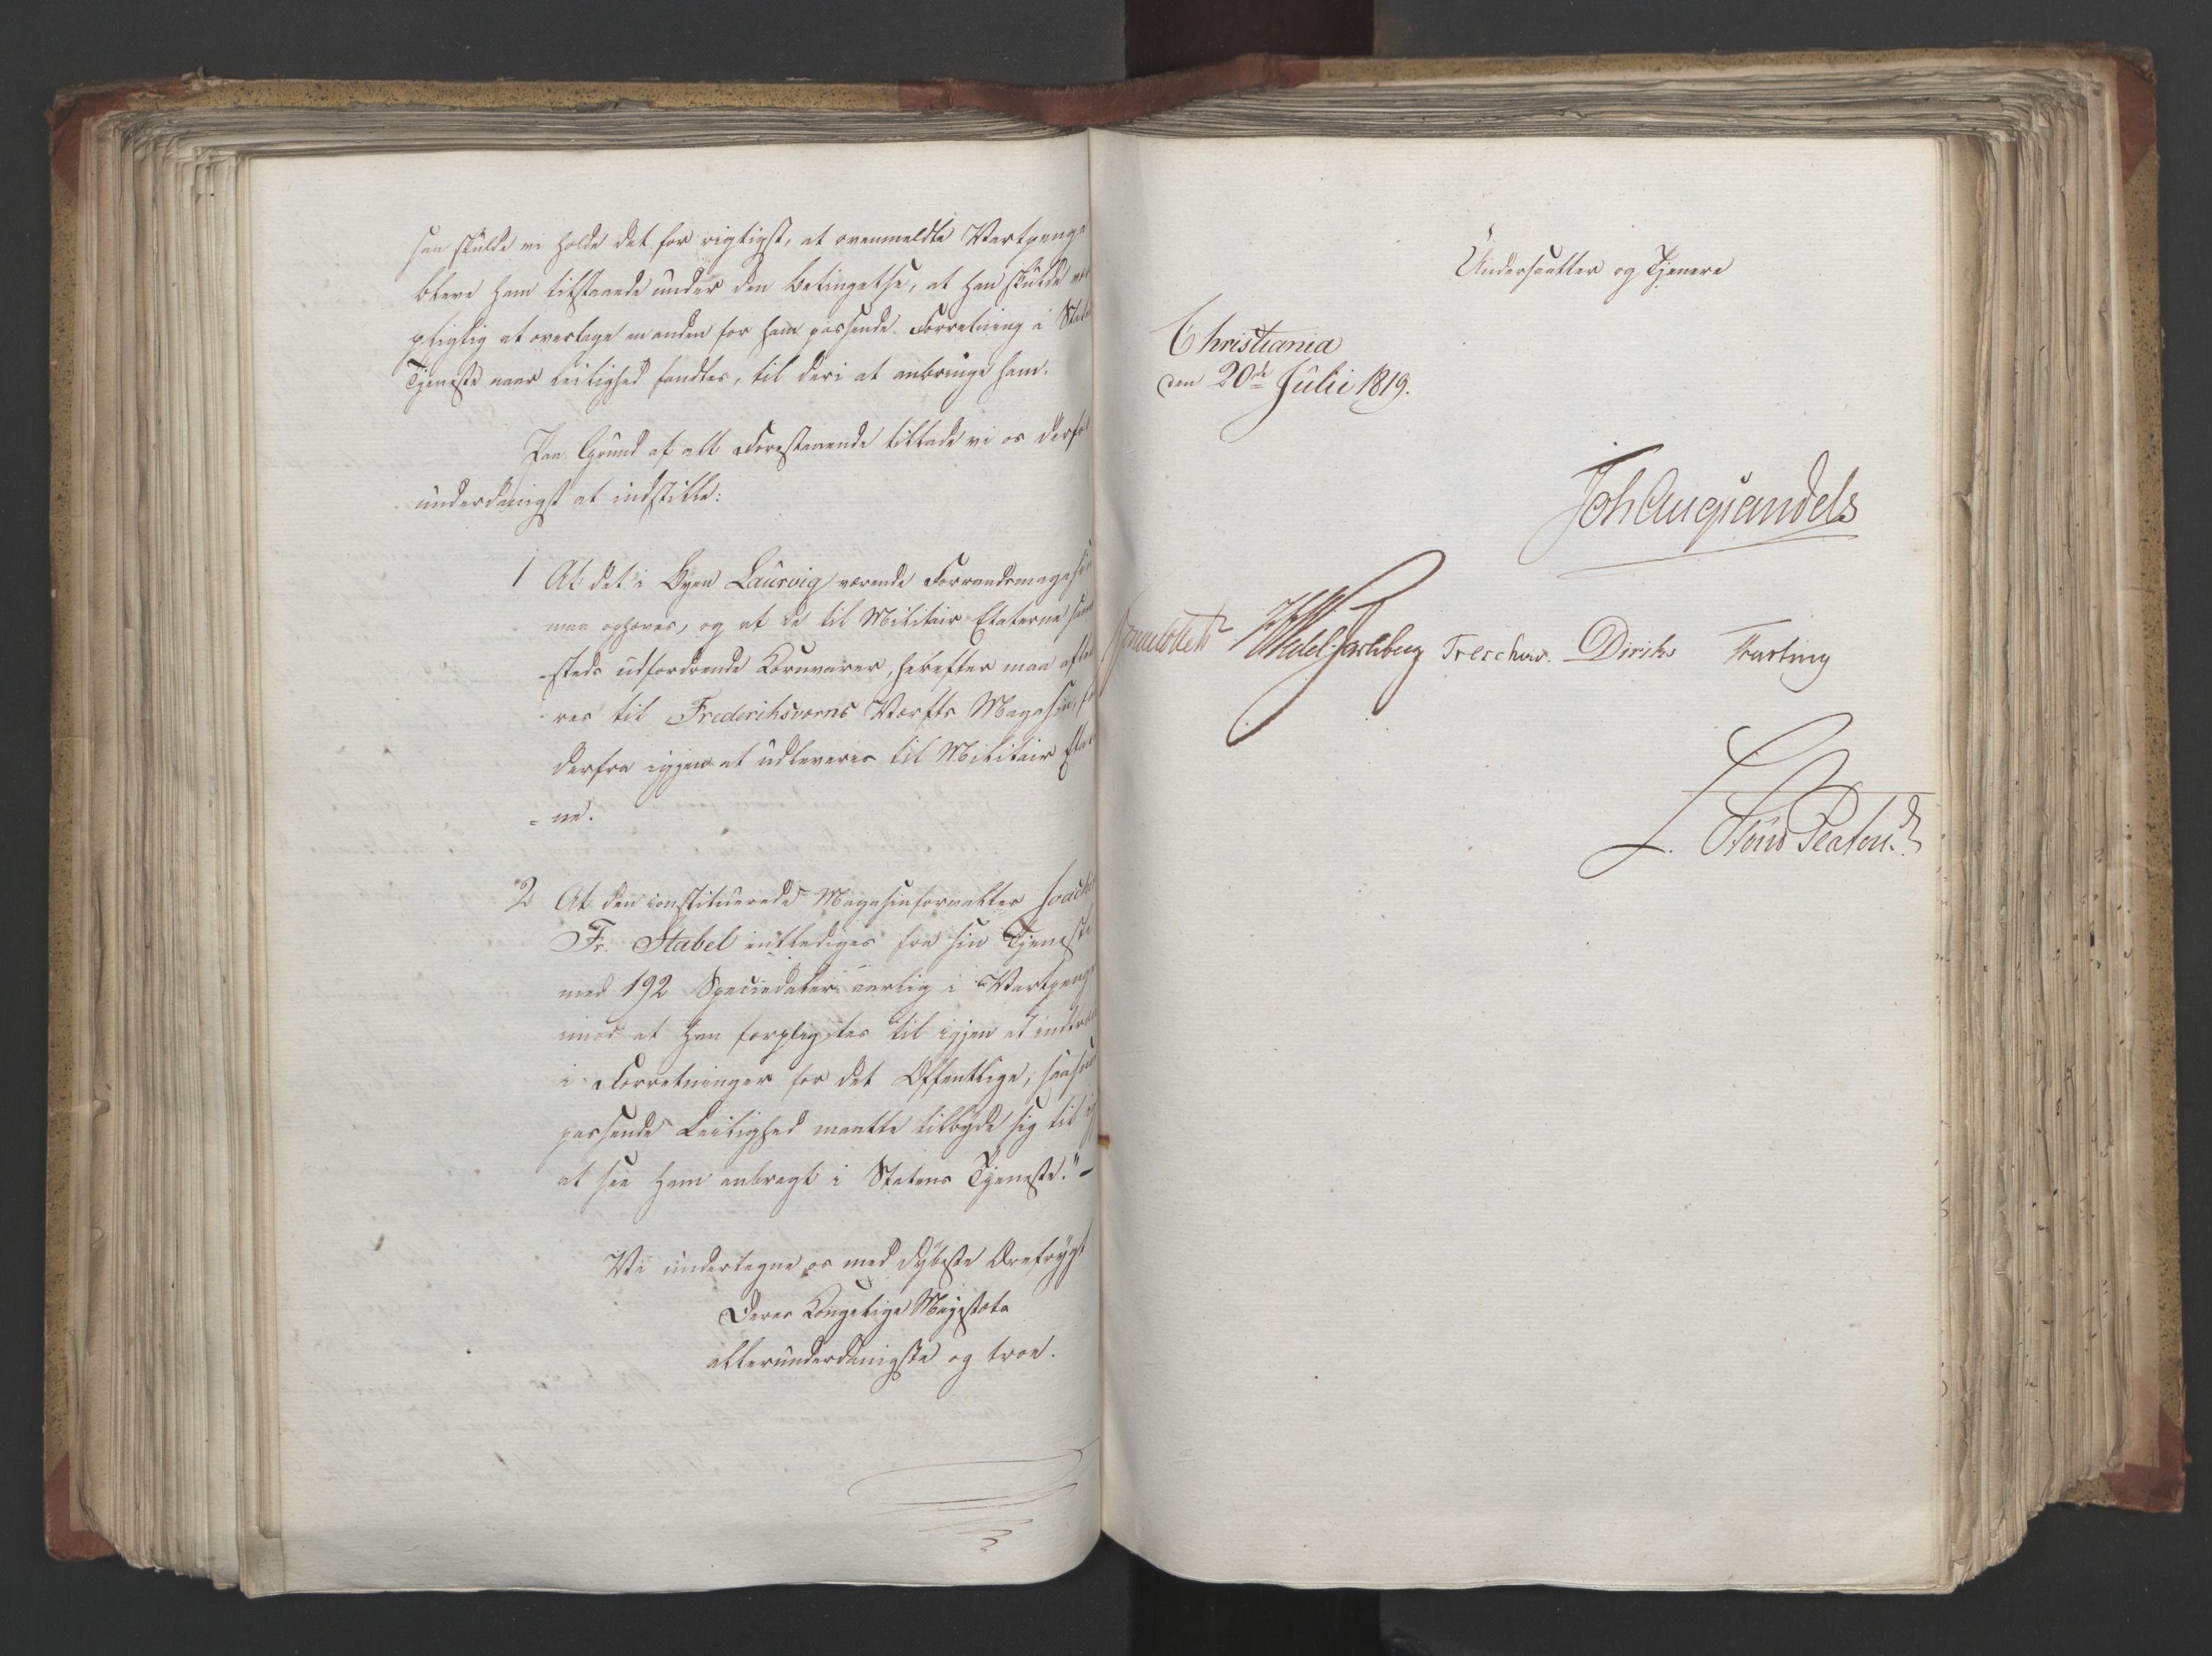 saa skulde vi holde det for rigtigst, at ovenmeldte Vartpenge
bleve ham tilstaaede under den Betingelse, at han skulde
pligtig at overtage en anden for ham passende Forretning i
Tjeneste naar Leilighed fandtes, til deri at anbringe ham.
Paa Grund af alt Forestaaende tillade vi os derfor
underdanigst at indstille:
1 At det i Byen Laurvig værende Forraadsmagasin
maa ophæves, og at de til Militair Etaterne
steds udfordrende Kornvarer, herefter maa
res til Frederiksværns Værfts Magasin, for
derfra igjen at udleveres til Militair
ne.
2 At den constituerede Magasinforvalter Joachim
Fr. Stabel entlediges fra sin Tjeneste
med 192 Speciedaler aarlig i Vartpenge
imod at han forpligtes til igjen at indtræde
i Forretninger for det Offentlige, saasnart
passende Leilighed maatte tilbyde sig til
at see ham anbragt i Statens Tjeneste." -
Vi undertegne os med dybeste Ærefrygt
Deres Kongelige Majestæts
allerunderdanigste og troe.
Undersaatter og Tjenere
Christiania
den 20de Julii 1819.
Joh Aug Sandels
Sommerfeldt Wedel Jarlsberg Treschow. Diriks Fasting
L.